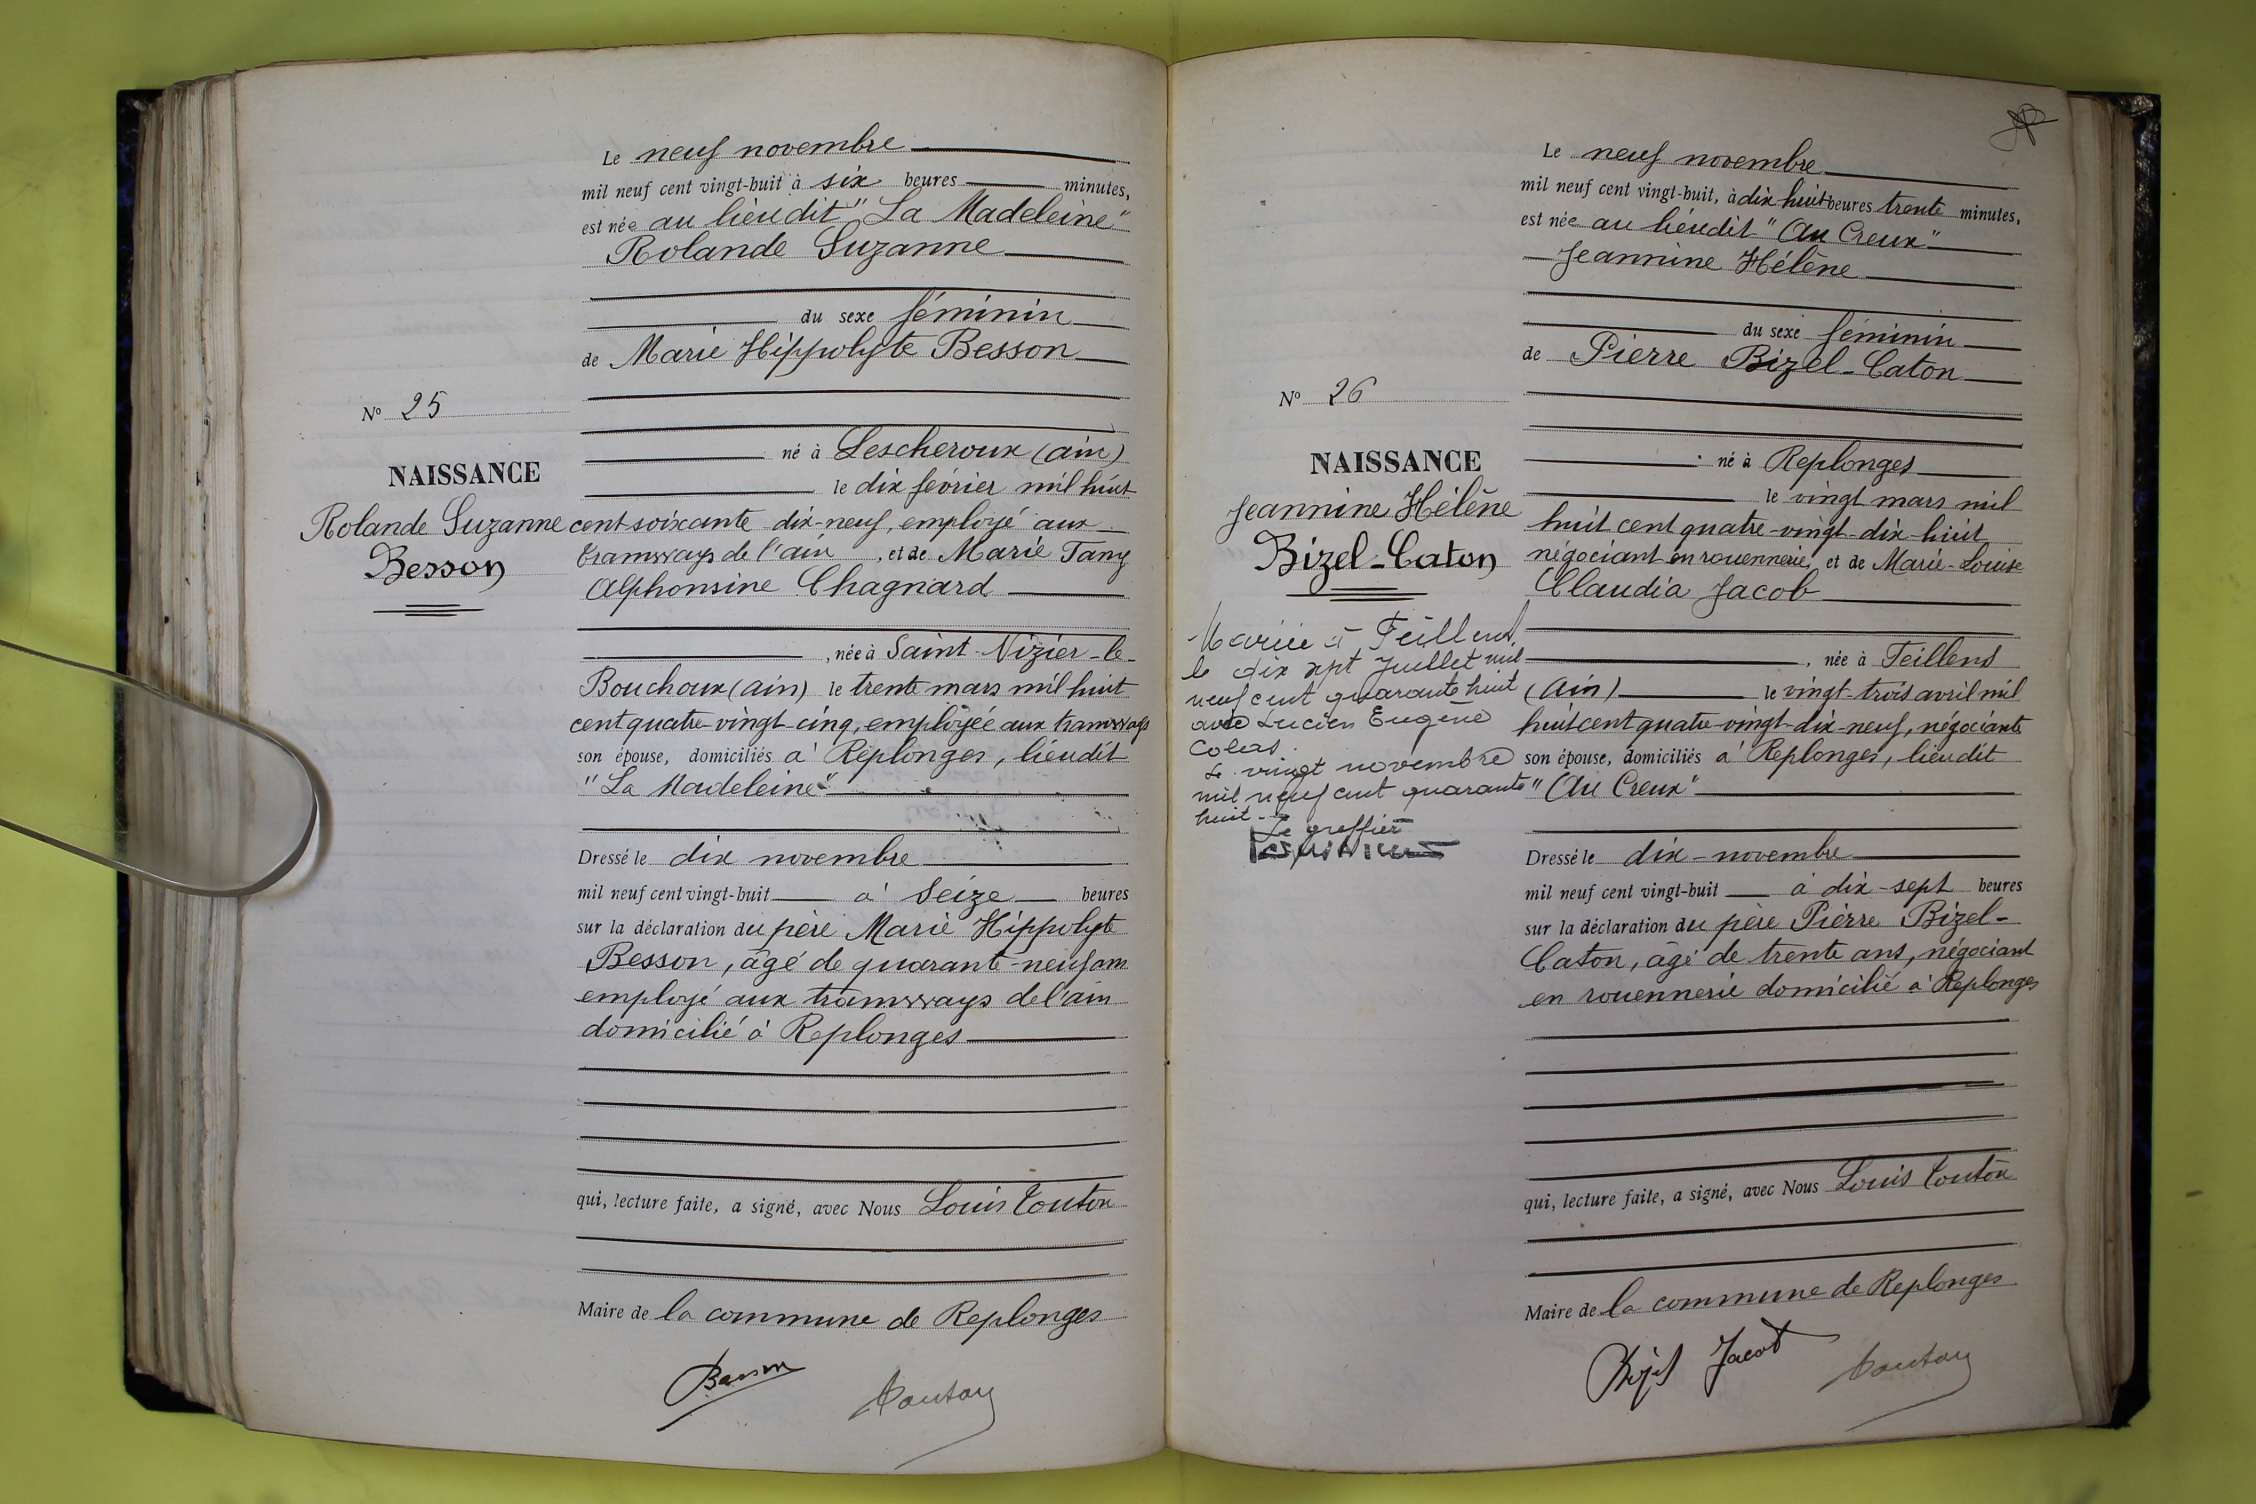 Le neuf novembre
mil neuf cent vingt-huit à six heures minutes,
est née au lieu dit "La Madeleine"
Rolande Suzanne
du sexe féminin
de Marie Hippolyte Besson
né à Lescheroux (ain)
le dix février mil huit
cent soixante dix-neuf, employé aux
tramways de l'ain, et de Marie Fany
Alphonsine Chagnard
, née à Saint-Nizier-le-
Bouchoux (ain) le trente mars mil huit
cent quatre-vingt-cinq, employée aux tramways
son épouse, domiciliés à Replonges, lieudit
"La Madeleine"
Dressé le dix novembre
mil neuf cent vingt-huit à seize heures
sur la déclaration du père Marie Hippolyte
Besson, âgé de quarante-neuf ans
employé aux tramways de l'ain
domicilié à Replonges
qui, lecture faite, a signé, avec Nous Louis Touton
Maire de la commune de Replonges
Besson Touton
N° 25
NAISSANCE
Rolande Suzanne
Besson
Le neuf novembre
mil neuf cent vingt-huit, à dix-huit heures trente minutes,
est née au lieudit "Au Creux"
Jeannine Hélène
du sexe féminin
de Pierre Bizel-Caton
né à Replonges
le vingt mars mil
huit cent quatre-vingt-dix-huit
négociant en rouennerie, et de Marie-Louise
Claudia Jacob
, née à Feillens
(Ain) le vingt-trois avril mil
huit cent quatre-vingt-dix-neuf, négociante
son épouse, domiciliés à Replonges, lieudit
"Au Creux"
Dressé le dix-novembre
mil neuf cent vingt-huit à dix-sept heures
sur la déclaration du père Pierre Bizel-
Caton, âgé de trente ans, négociant
en rouennerie domicilié à Replonges
qui, lecture faite, a signé, avec Nous Louis Touton
Maire de la commune de Replonges
Bizel Jacob Touton
N° 26
NAISSANCE
Jeannine Hélène
Bizel-Caton
Mariée à Feillens
le dix sept Juillet mil
neuf cent quarante huit
avec Lucien Eugène
Colas.
Le vingt novembre
mil neuf cent quarante
huit -
Le greffier